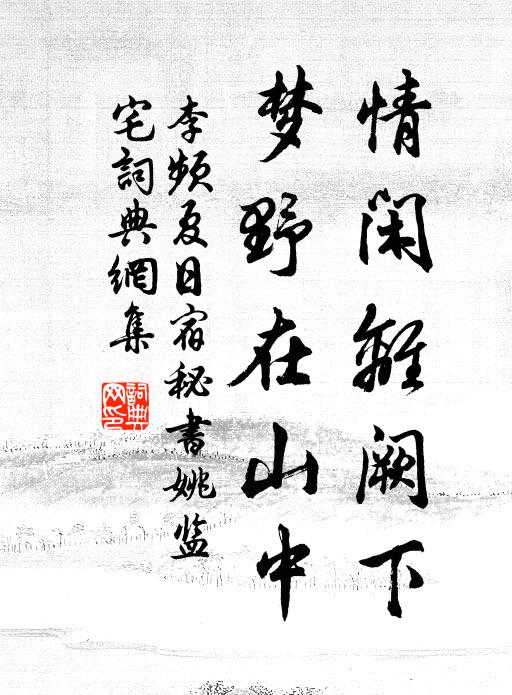 情闲離阙下
梦野在山中
李频夏日宿秘書姚監
宅詞典網集
詞典网印